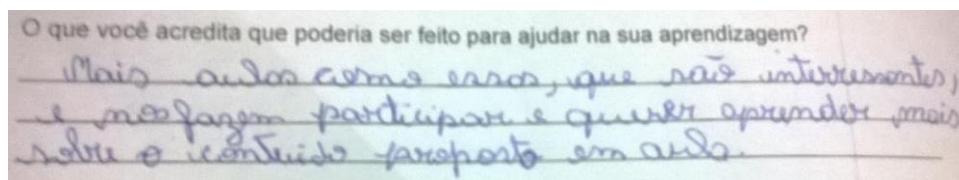 O que você acredita que poderia ser feito para ajudar na sua aprendizagem?
Mais aulas como essas, que são interressantes,
e nos fazem participar e querer aprender mais
sobre o conteúdo proposto em aula.